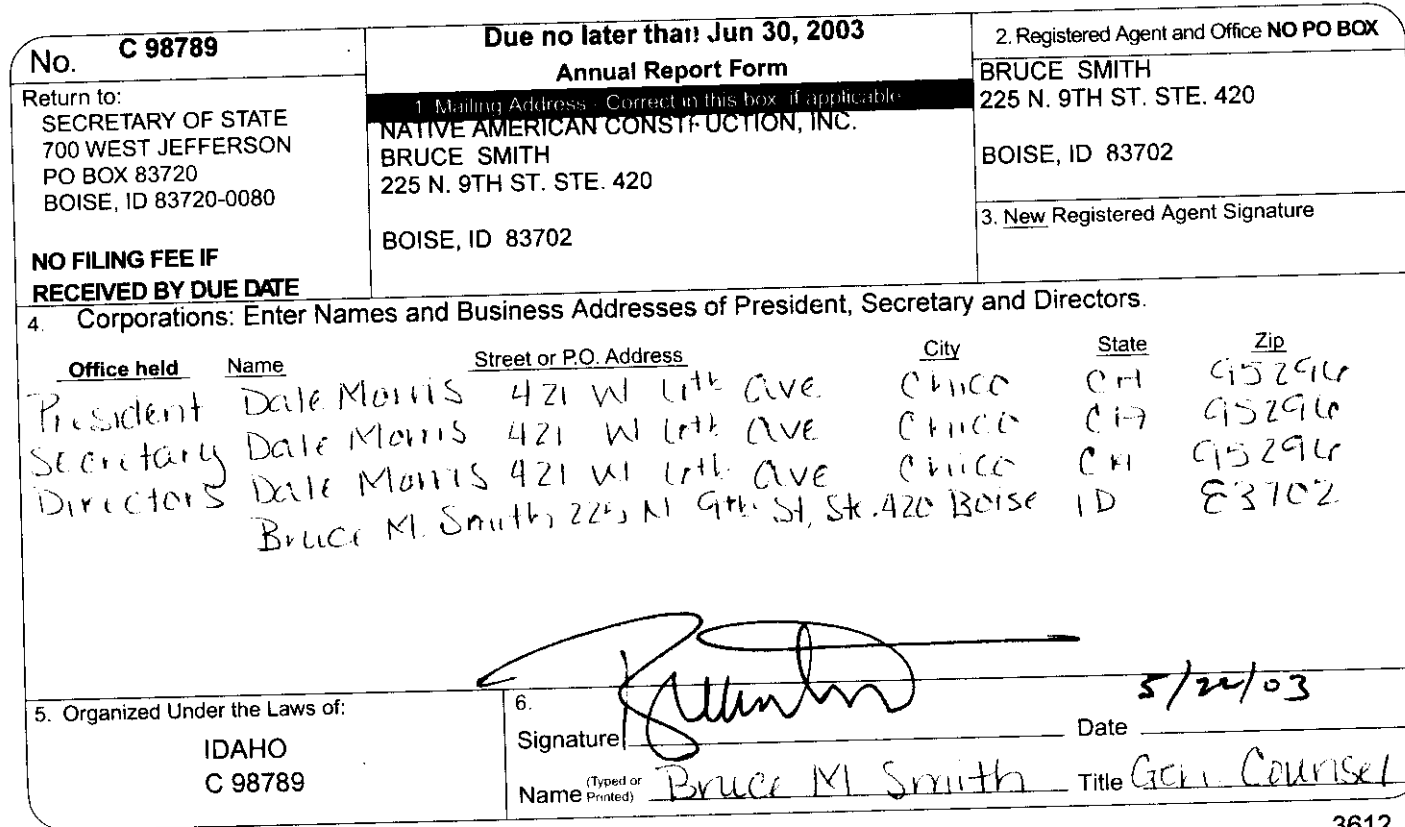 No. C 98789
Return to:
SECRETARY OF STATE
700 WEST JEFFERSON
PO BOX 83720
BOISE, ID 83720-0080
NO FILING FEE IF
RECEIVED BY DUE DATE
Due no later than Jun 30, 2003
Annual Report Form
1. Mailing Address - Correct in this box if applicable
NATIVE AMERICAN CONSTRUCTION, INC.
BRUCE SMITH
225 N. 9TH ST. STE. 420
BOISE, ID 83702
2. Registered Agent and Office NO PO BOX
BRUCE SMITH
225 N. 9TH ST. STE. 420
BOISE, ID 83702
3. New Registered Agent Signature
4. Corporations: Enter Names and Business Addresses of President, Secretary and Directors.
Office held Name Street or P.O. Address City State Zip
President Dale Morris 421 W 6th Ave Chico CA 95296
Secretary Dale Morris 421 W 6th Ave Chico CA 95296
Directors Dale Morris 421 W 6th Ave Chico CA 95296
Bruce M. Smith, 225 N 9th St, Ste. 420 Boise ID 83702
5. Organized Under the Laws of:
IDAHO
C 98789
6.
Signature Date
Name (Typed or Printed) Bruce M Smith Title Gen. Counsel
3612